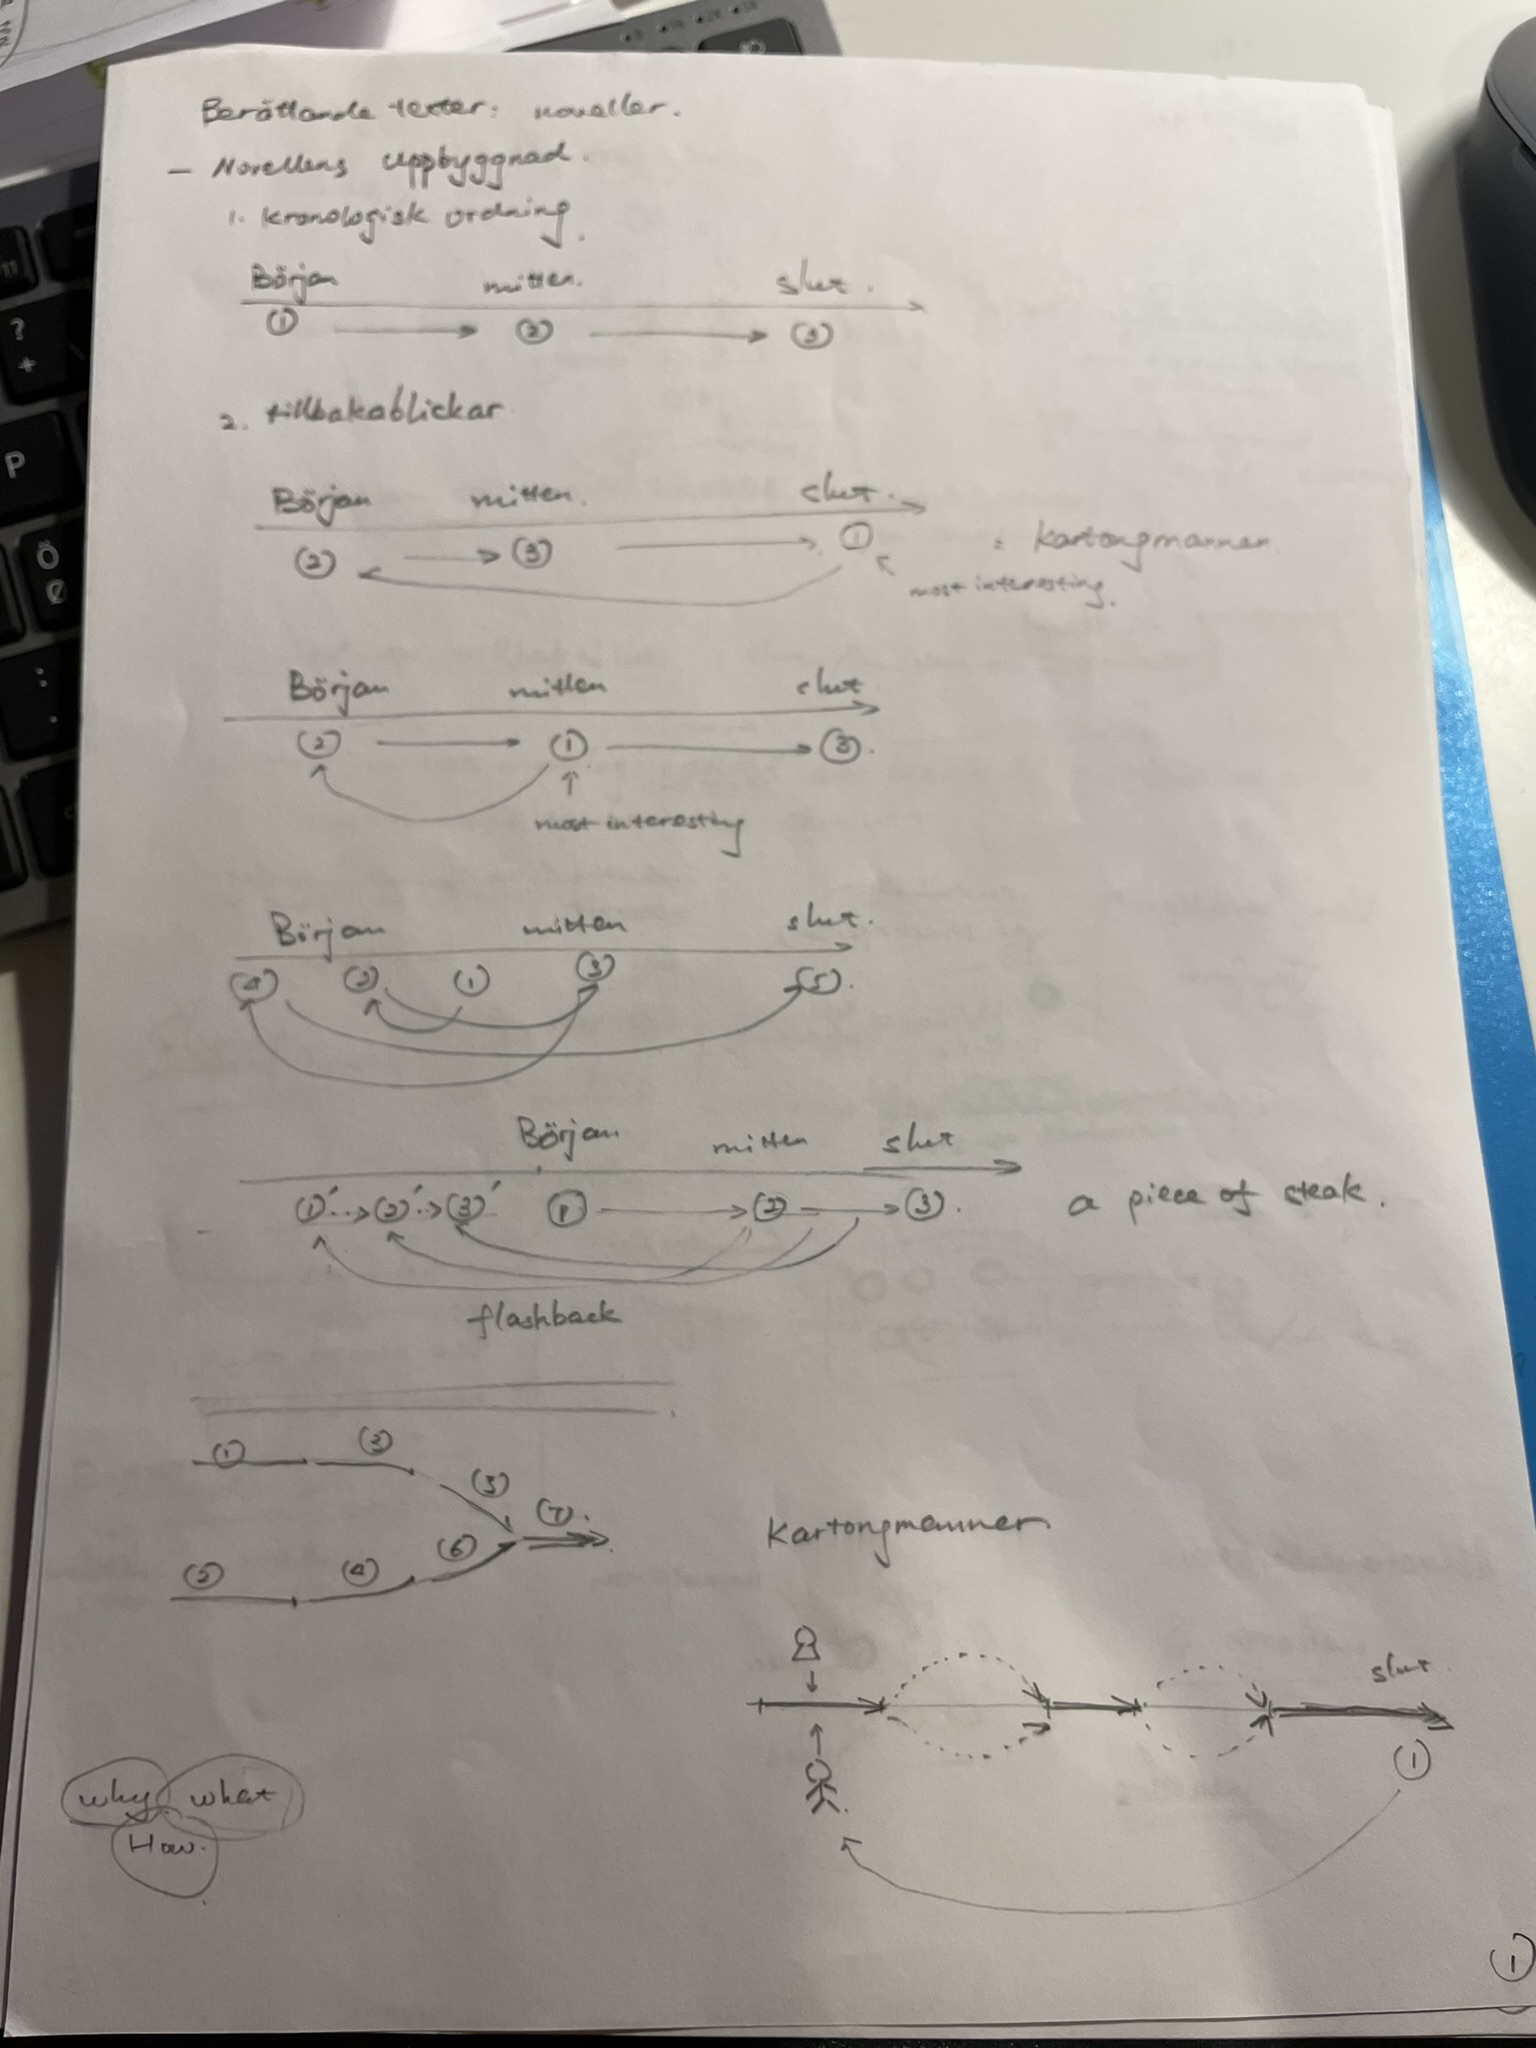 Berättande texter: noveller.
– Novellens uppbyggnad.
1. kronologisk ordning.
Början mitten. slut.
① ② ③
2. tillbakablickar
Början mitten. slut.
② ③ ① = kartongmannen
most interesting.
Början mitten slut
② ① ③.
most interesting
Början mitten slut.
④ ② ① ③ ⑤.
Början mitten slut
①' ②' ③' ① ② ③. a piece of steak.
flashback
① ③
⑤ ⑦.
② ④ ⑥
Kartongmannen
slut.
①
why what
How.
①